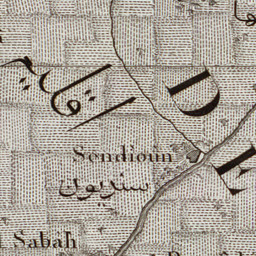 اقليم
D
Sendioun
E
سنديون
Sabah